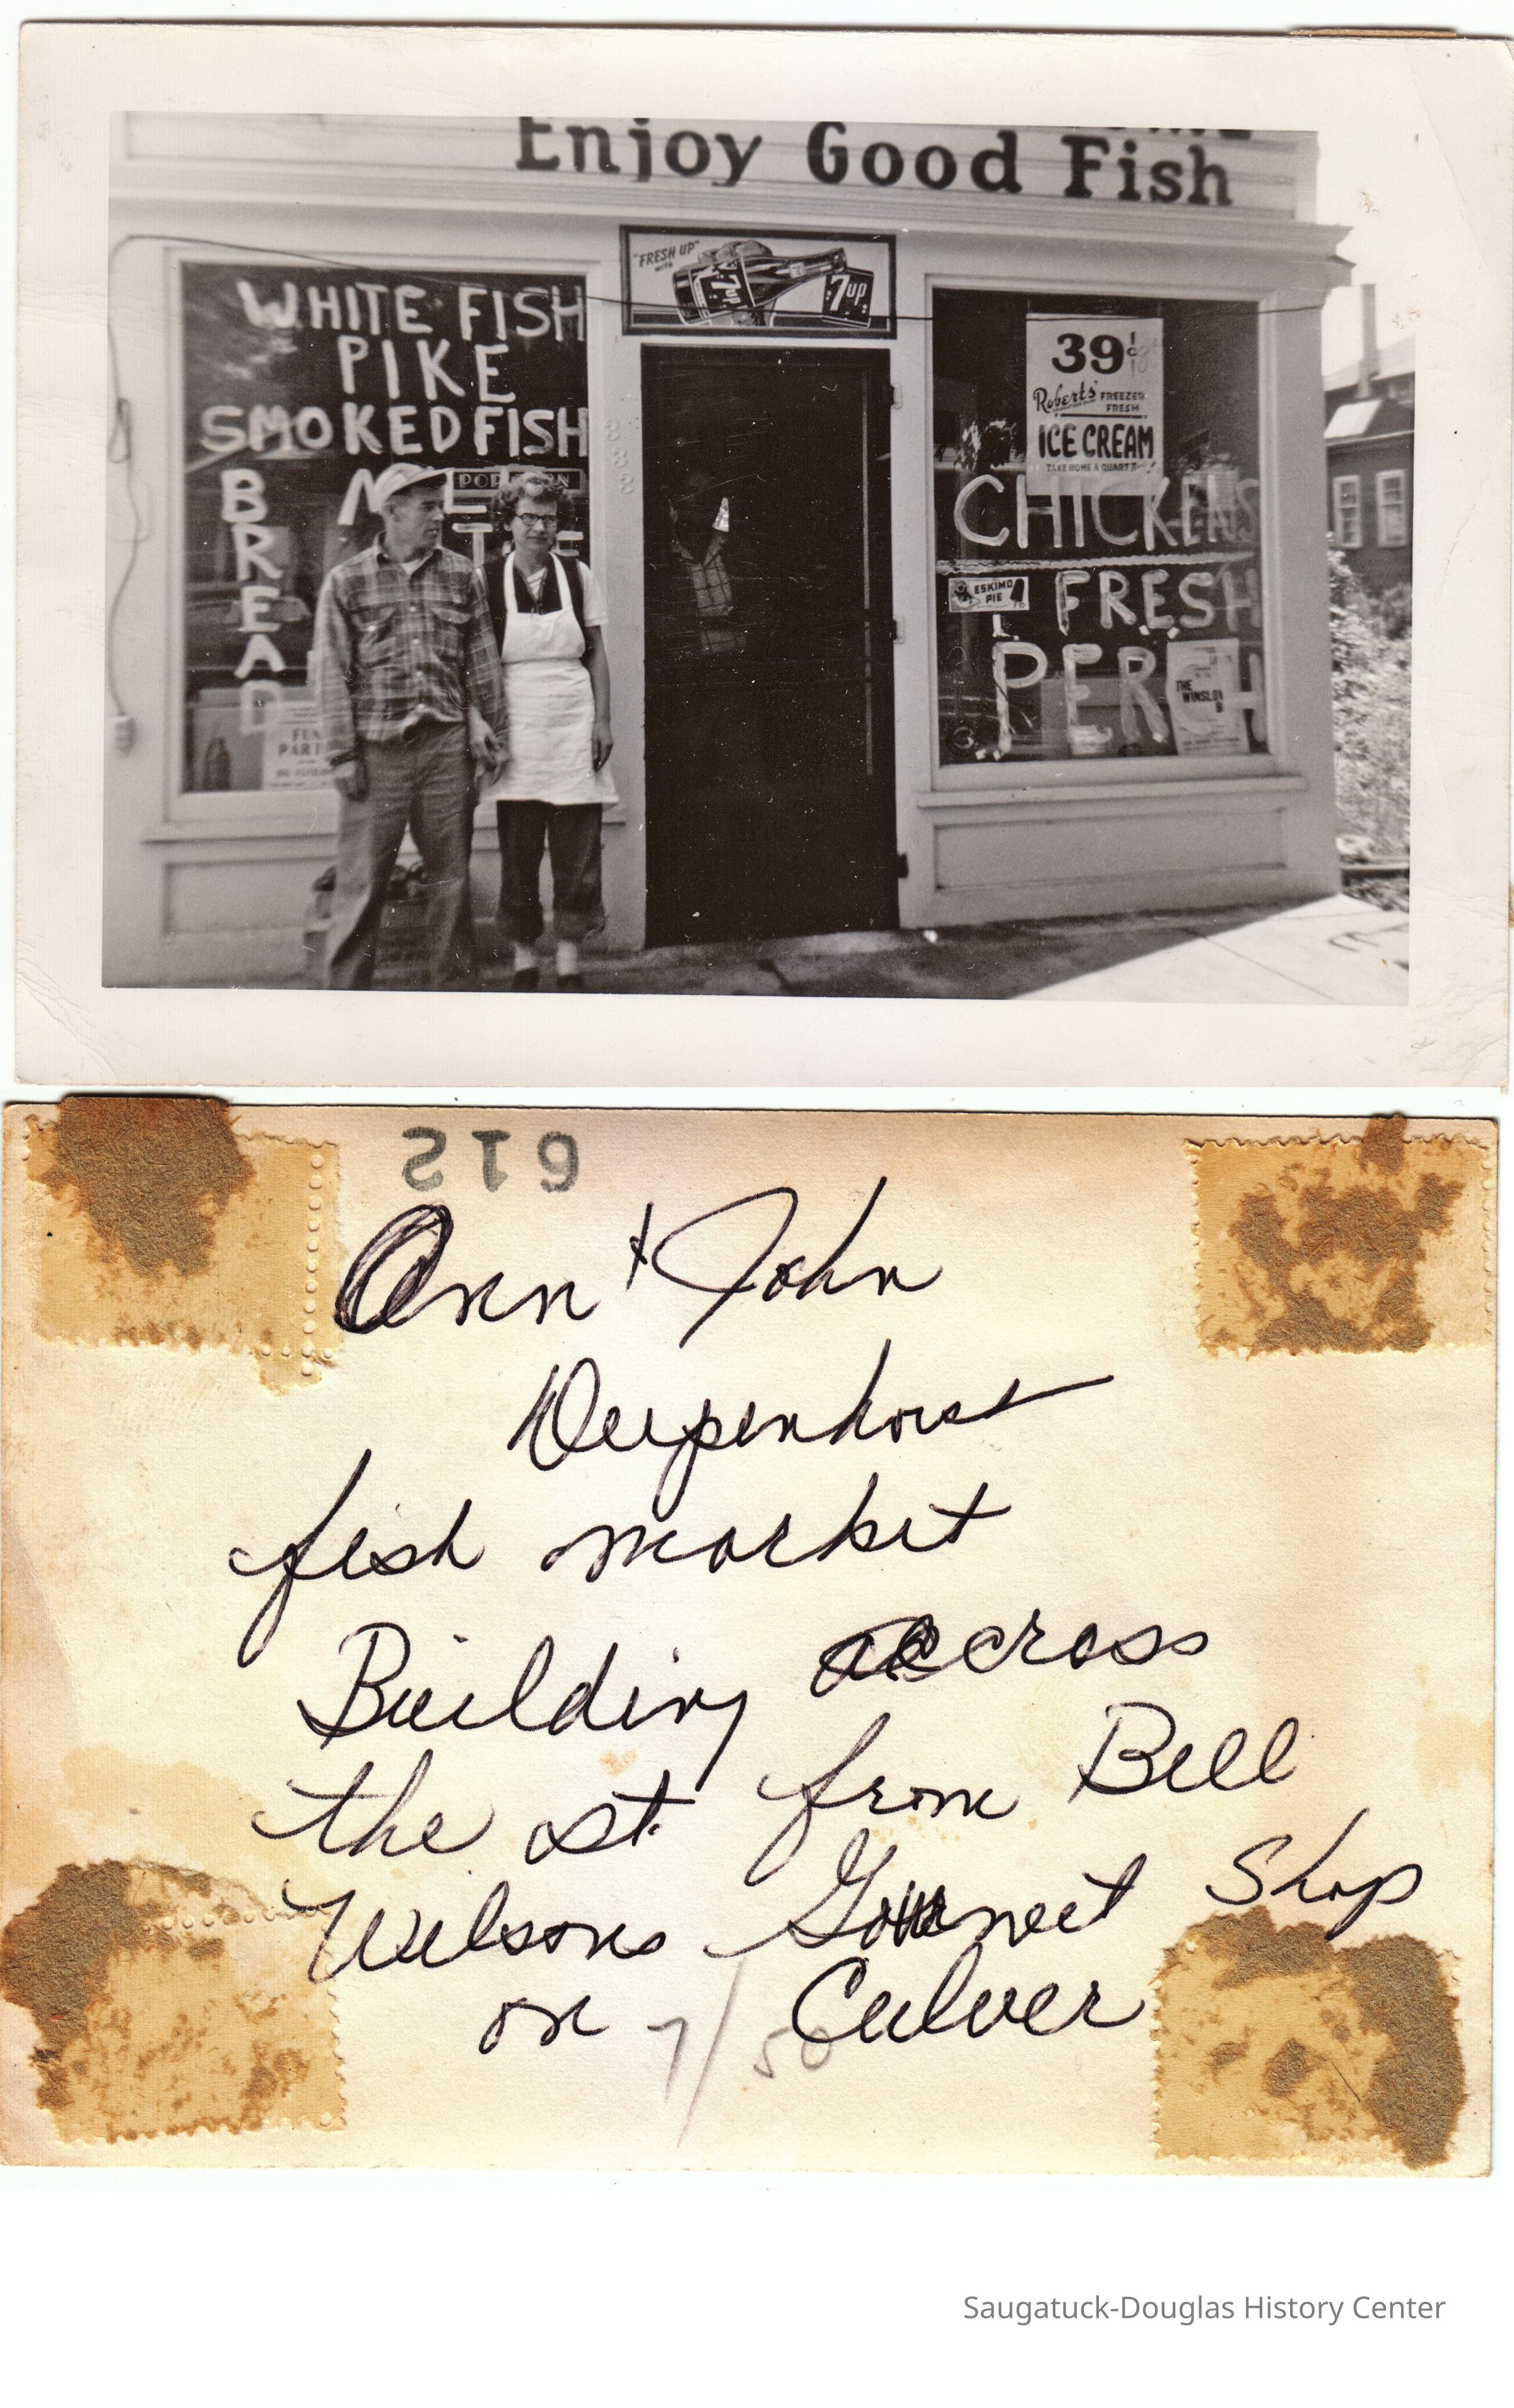 Enjoy Good Fish
"FRESH UP"
WITH
7up
7up
WHITE FISH
PIKE
SMOKED FISH
BREAD
333
39¢
Roberts' FREEZER
FRESH
ICE CREAM
TAKE HOME A QUART
CHICKENS
ESKIMO
PIE
FRESH
PERCH
THE
WINSLOW
612
Ann + John
Deepenhorst
fish market
Building accross
the st. from Bell
Wilsons Gourmet Shop
on Culver
7/50
Saugatuck-Douglas History Center